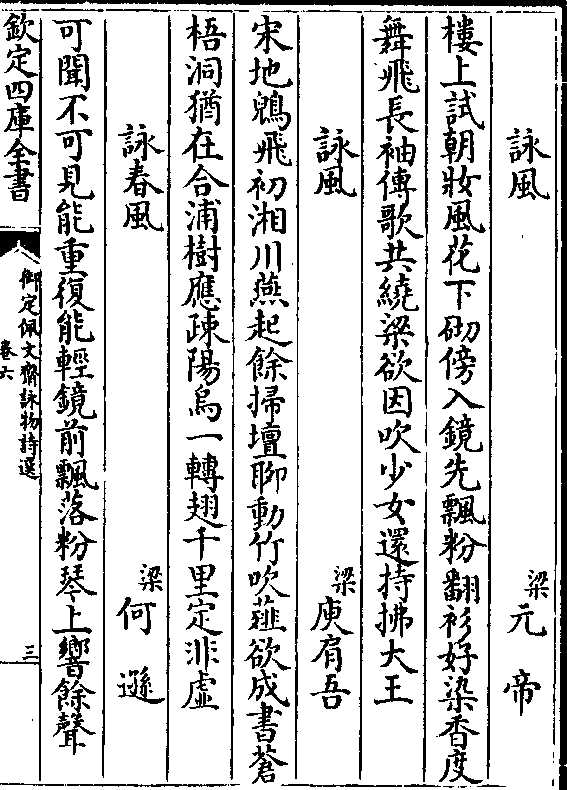 詠風 梁元帝
樓上試朝妝風花下砌傍入鏡先飄粉翻衫好染香度
舞飛長袖傳歌共繞梁欲因吹少女還持拂大王
詠風 梁庾肩吾
宋地鵶飛初湘川燕起餘掃壇聊動竹吹薤欲成書蒼
梧洞猶在合浦樹應疎陽烏一轉翅千里定非虛
詠春風 梁何遜
可聞不可見能重復能輕鏡前飄落粉琴上響餘聲
欽定四庫全書
御定佩文齋詠物詩選
卷六
三